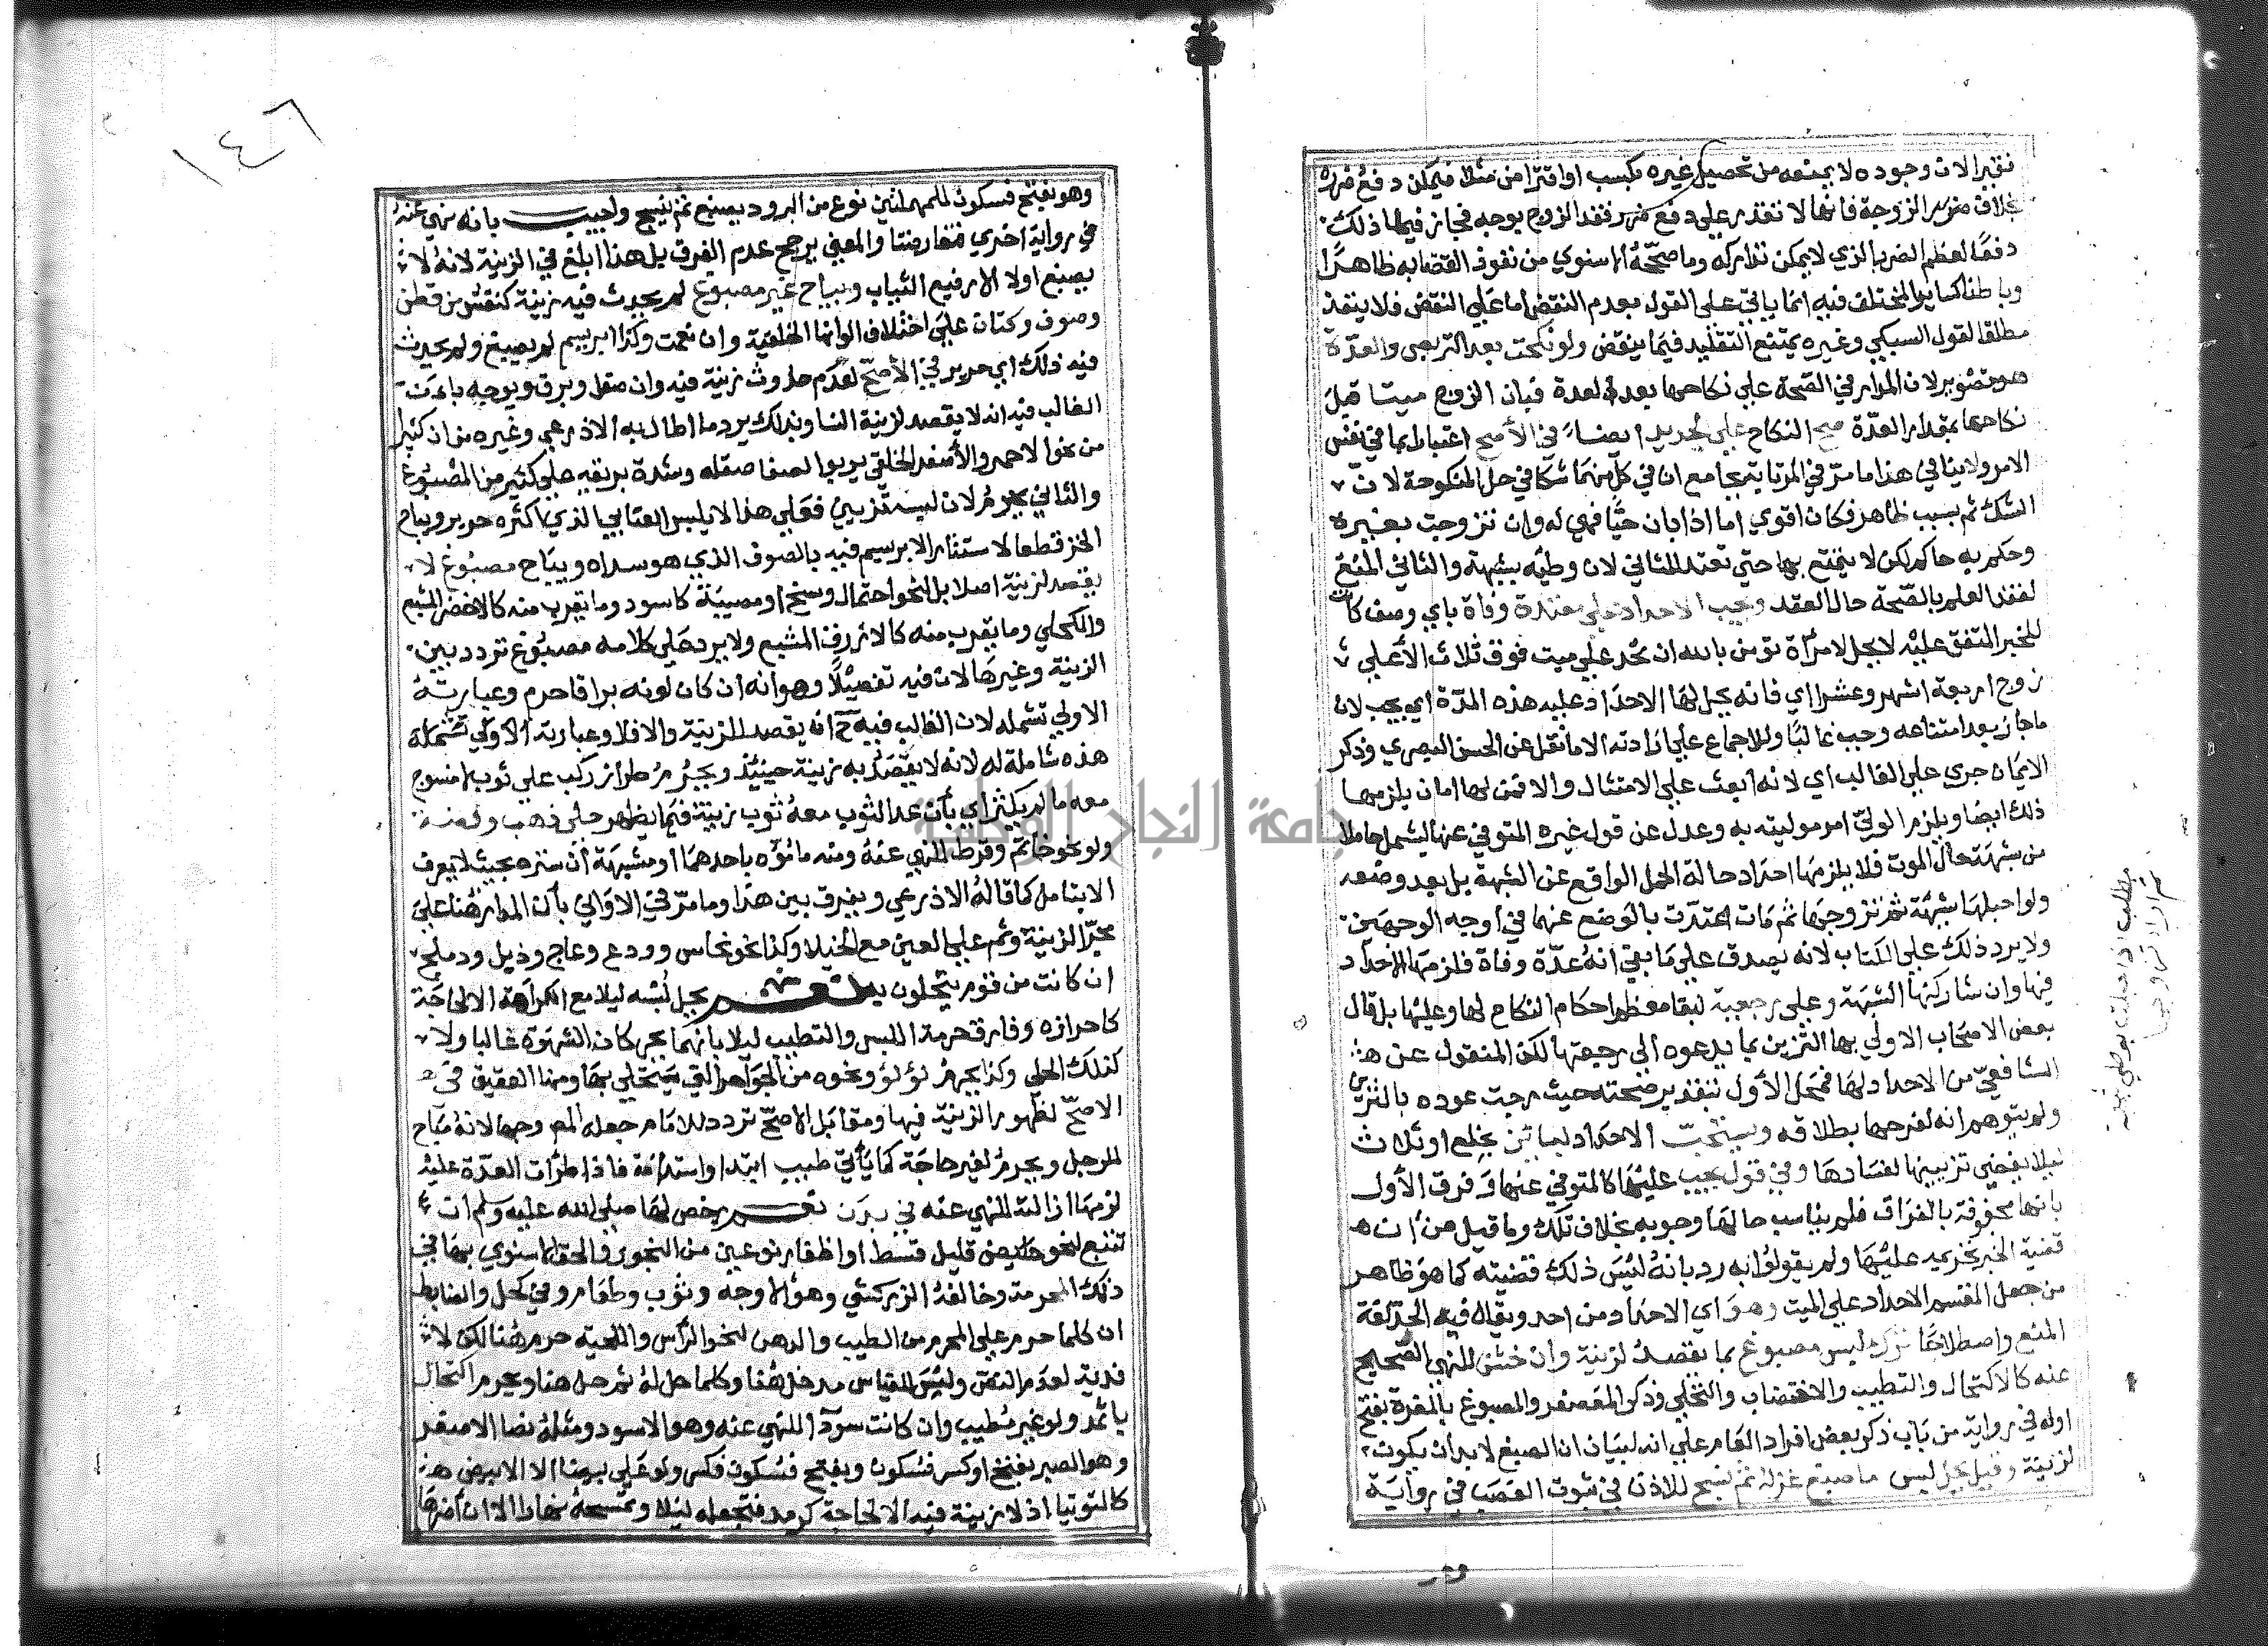 فقير الان وجوده لا يمنعه من تحصيل غيره بكسب او اقتراض مثلا فيمكن دفع ضرره
بخلاف ضرر الزوجة فانها لا تقدر على دفع ضرر فقد الزوج بوجه فجاز فيها ذلك
دفعا لعظم الضرر الذي لا يمكن تداركه وما صححه الاسنوي من نفوذ القضا به ظاهرا
وباطنا كسائر المختلف فيه انما ياتي على القول بعدم النقض اما على النقض فلا ينفذ
مطلقا لقول السبكي وغيره يمتنع التقليد فيما ينقض ولو نكحت بعد التربص والعدة
هو تصوير لان المدار في الصحة على نكاحها بعد العدة فبان الزوج ميتا قبل
نكاحها بمقدار العدة صح النكاح على الجديد ايضا في الأصح اعتبارا بما في نفس
الامر ولا ينافي هذا ما مر في المرتابة بجامع ان في كل منهما شكا في حل المنكوحة لان
الشك ثم بسبب ظاهر فكان اقوي اما اذا بان حيا فهي له وان تزوجت بغيره
وحكم به حاكم لكن لا يتمتع بها حتي تعتد للثاني لان وطئه بشبهة والثاني المنع
لفقد العلم بالصحة حال العقد ويجب الاحداد على معتدة وفاة باي وصف كان
للخبر المتفق عليه لا يحل لامرأة تؤمن بالله ان تحد علي ميت فوق ثلاث الا علي
زوج اربعة اشهر وعشرا اي فانه يحل لها الاحداد عليه هذه المدة اي يجب لان
ما جاز بعد امتناعه وجب غالبا وللاجماع علي ارادته الا ما نقل عن الحسن البصري وذكر
الايمان جري على الغالب اي لانه ابعث على الامتثال والا فمن لها امان يلزمها
ذلك ايضا ويلزم الولي امر موليته به وعدل عن قول غيره المتوفي عنها ليشمل حاملا
من شبهة حال الموت فلا يلزمها احداد حالة الحمل الواقع عن الشبهة بل بعد وضعه
ولو احبلها بشبهة ثم تزوجها ثم مات اعتدت بالوضع عنهما في اوجه الوجهين
ولا يرد ذلك على الكتاب لانه يصدق علي ما بقي انه عدة وفاة فلزمها الاحداد
فيها وان شاركتها الشبهة وعلى رجعية لبقا معظم احكام النكاح لها وعليها بل قال
بعض الاصحاب الاولي بها التزين بما يدعوه الي رجعتها لكن المنقول عن
الشافعي من الاحداد لها فمحل الأول بتقدير صحته حيث رجت عوده بالتزين
ولم يتوهم انه لفرحها بطلاقه ويستحب الاحداد لبائن بخلع او ثلاث
ليلا يفضي تزيينها لفسادها وفي قول يجب عليها كالمتوفي عنها وفرق الأول
بانها مجفوة بالفراق فلم يناسب حالها وجوبه بخلاف تلك وما قيل من ان
قضية الخبر تحريمه عليها ولم يقولوا به رد بانه ليس ذلك قضيته كما هو ظاهر
من جعل المقسم الاحداد علي الميت وهو اي الاحداد من احد ويقال فيه الحد لغة
المنع واصطلاحا ترك لبس مصبوغ بما يقصد لزينة وان خشن للنهي الصحيح
عنه كالاكتحال والتطيب والاختضاب والتحلي وذكر المعصفر والمصبوغ بالمغرة بفتح
اوله في رواية من باب ذكر بعض افراد العام علي انه لبيان ان الصبغ لا بد ان يكون
لزينة وقيل يحل لبس ما صبغ غزله ثم نسج للاذن في ثوب العصب في رواية
مطلب اذا حبلت بوطئ شبهة
ثم اراد تزوجها
١٤٦
وهو بفتح فسكون للمهملتين نوع من البرود يصبغ ثم ينسج واجيب بانه نهي عنه
في رواية اخري فتعارضتا والمعني يرجح عدم الفرق بل هذا ابلغ في الزينة لانه لا
يصبغ اولا الا رفيع الثياب ويباح غير مصبوغ لم يحدث فيه زينة كنقش من قطن
وصوف وكتان على اختلاف الوانها الخلقية وان نعمت وكذا ابريسم لم يصبغ ولم يحدث
فيه ذلك اي حرير في الأصح لعدم حدوث زينة فيه وان صقل وبرق ويوجه بان
الغالب فيه انه لا يقصد لزينة النسا وبذلك يرد ما اطال به الاذرعي وغيره من ان كثيرا
من نحو الاحمر والأصفر الخلقي يربو لصفا صقله وشدة بريقه علي كثير من المصبوغ
والثاني يحرم لان لبسه تزيين فعلي هذا لا يلبس العتابي الذي اكثره حرير ويباح
الخز قطعا لاستتار الابريسم فيه بالصوف الذي هو سداه ويباح مصبوغ لا
يقصد لزينة اصلا بل لنحو احتمال وسخ او مصيبة كاسود وما يقرب منه كالاخضر المشبع
والكحلي وما يقرب منه كالازرق المشبع ولا يرد على كلامه مصبوغ تردد بين
الزينة وغيرها لان فيه تفصيلا وهو انه ان كان لونه براقا حرم وعبارته
الاولي تشمله لان الغالب فيه ح انه يقصد للزينة والا فلا وعبارته الاولي تشمله
هذه شاملة له لانه لا يقصد به زينة حينئذ ويحرم طراز ركب علي ثوب لا منسوج
معه ما لم يكثر اي بأن عد الثوب معه ثوب زينة فيما يظهر حلي ذهب وفضة
ولو نحو خاتم وقرط للنهي عنه ومنه مائوه باحدهما او مشبهه ان ستره بحيث لا يعرف
الا بتامل كما قاله الاذرعي ويفرق بين هذا وما مر في الاواني بأن المدار هنا على
مجرد الزينة وثم على العين مع الخيلا وكذا نحو نحاس وودع وعاج وذبل ودملج
ان كانت من قوم يتحلون به نعم يحل لبسه ليلا مع الكراهة الا لحاجة
كاحرازه وفارق حرمة اللبس والتطيب ليلا بانهما يحركان الشهوة غالبا ولا
كذلك الحلي وكذا يحرم لؤلؤ ونحوه من الجواهر التي يتحلي بها ومنها العقيق في
الاصح لظهور الزينة فيها ومقابل الاصح تردد للامام جعله المص وجها لانه مباح
للرجل ويحرم لغير حاجة كما يأتي طيب ابتدا واستدامة فاذا طرأت العدة عليه
لزمها ازالته للنهي عنه في بدن نعم رخص لها صلى الله عليه وسلم ان
تتبع لنحو حيض قليل قسط او اظفار نوعين من البخور والحق الاسنوي بها في
ذلك المحرمة وخالفه الزركشي وهو الاوجه وثوب وطعام وفي كحل والضابط
ان كلما حرم على المحرم من الطيب والدهن لنحو الرأس واللحيه حرم هنا لكن لا
فدية لعدم النص وليس للقياس مدخل هنا وكلما حل له ثم حل هنا ويحرم اكتحال
باثمد ولو غير مطيب وان كانت سودآ للنهي عنه وهو الاسود ومثله نصا الاصفر
وهو الصبر بفتح او كسر فسكون وبفتح فسكون فكسر ولو على بيضا الا الابيض
كالتوتيا اذ لا زينة فيه الا لحاجة كرمد فتجعله ليلا وتمسحه نهارا الا ان أضرها
جامعة النجاح الوطنية